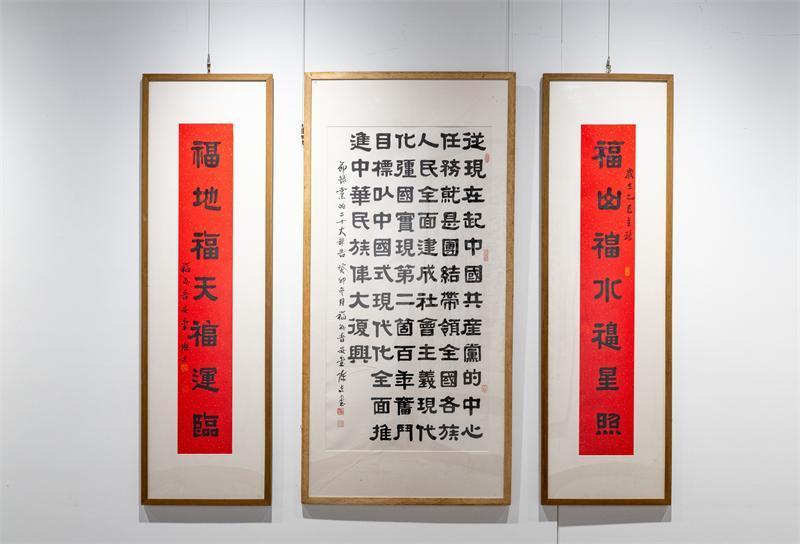 福山福水福星照
歲在乙巳
從現在起中國共産黨的中心
任務就是團結帶領全國各族
人民全面建成社會主義現代
化彊國實現第二箇百年奮鬥
目標以中國式現代化全面推
進中華民族偉大復興
節録黨的二十大報告 癸卯
福地福天福運臨